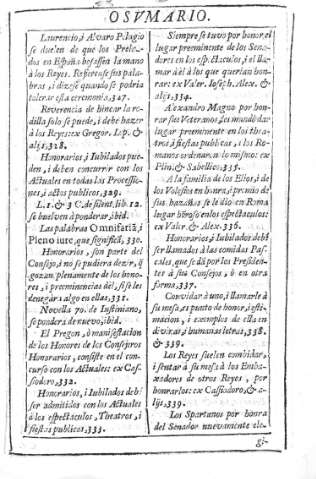 O SVMARIO.
Laurencio, i Alvaro Pelagio
se duelen de que los Prela-
dos en España besassen la mano
à los Reyes. Refierense sus pala-
bras, i dizese quando se podria
tolerar esta ceremonia, 327.
Reverencia de hincar la ro-
dilla solo se puede, i debe hazer
à los Reyes: ex Gregor. Lop. &
alijs, 328.
Honorarios, i Iubilados pue-
den, i deben concurrir con los
Actuales en todas las Processio-
nes, i actos publicos, 329.
L. 1. & 3. C. de silent. lib. 12.
se buelven à ponderar, ibid.
Las palabras Omnifariã, i
Pleno iure, que significã, 330.
Honorarios, son parte del
Consejo, i no se pudiera dezir, q̃
gozan plenamente del los hono-
res, i preeminencias dèl, si se les
denegára algo en ellas, 331.
Novella 70. de Iustiniano,
se pondera de nuevo, ibid.
El Pregon, ò manifestacion
de los Honores de los Consejeros
Honorarios, consiste en el con-
curso con los Actuales: ex Cas-
siodoro, 332.
Honorarios, i Iubilados debẽ
ser admitidos con los Actuales
à los espectàculos, Teatros, i
fiestas publicas, 333.
Siempre se tuvo por honor, el
lugar preeminente de los Sena-
dores en los espectàculos, i el lla-
mar à èl à los que querian hon-
rar: ex Valer. Ioseph. Alex. &
alijs, 334.
Alexandro Magno por hon-
rar sus Veteranos, les mandò dar
lugar preeminente en los thea-
tros à fiestas publicas, i los Ro-
manos ordenarõ lo mismo: ex
Plin. & Sabellico, 335.
A la familia de los Elios, i de
los Volesios en honra, i premio de
sus hazañas se le diò en Roma
lugar hõroso en los espectàculos:
ex Valer. & Alex. 336.
Honorarios, i Iubilados debẽ
ser llamados à las comidas Pas-
cales, que se dà por los Presiden-
tes à sus Consejos, ò en otra
forma, 337.
Convidar à uno, i llamarle à
su mesa, es punto de honor, i esti-
macion, i exemplos de ella en
divinas, i humanas letras, 338.
& 339.
Los Reyes suelen combidar,
i sentar à su mesa à los Emba-
xadores de otros Reyes, por
honrarlos: ex Cassiodoro, & a-
lijs, 339.
Los Spartanos por honra
del Senador nuevamente ele-
gi-